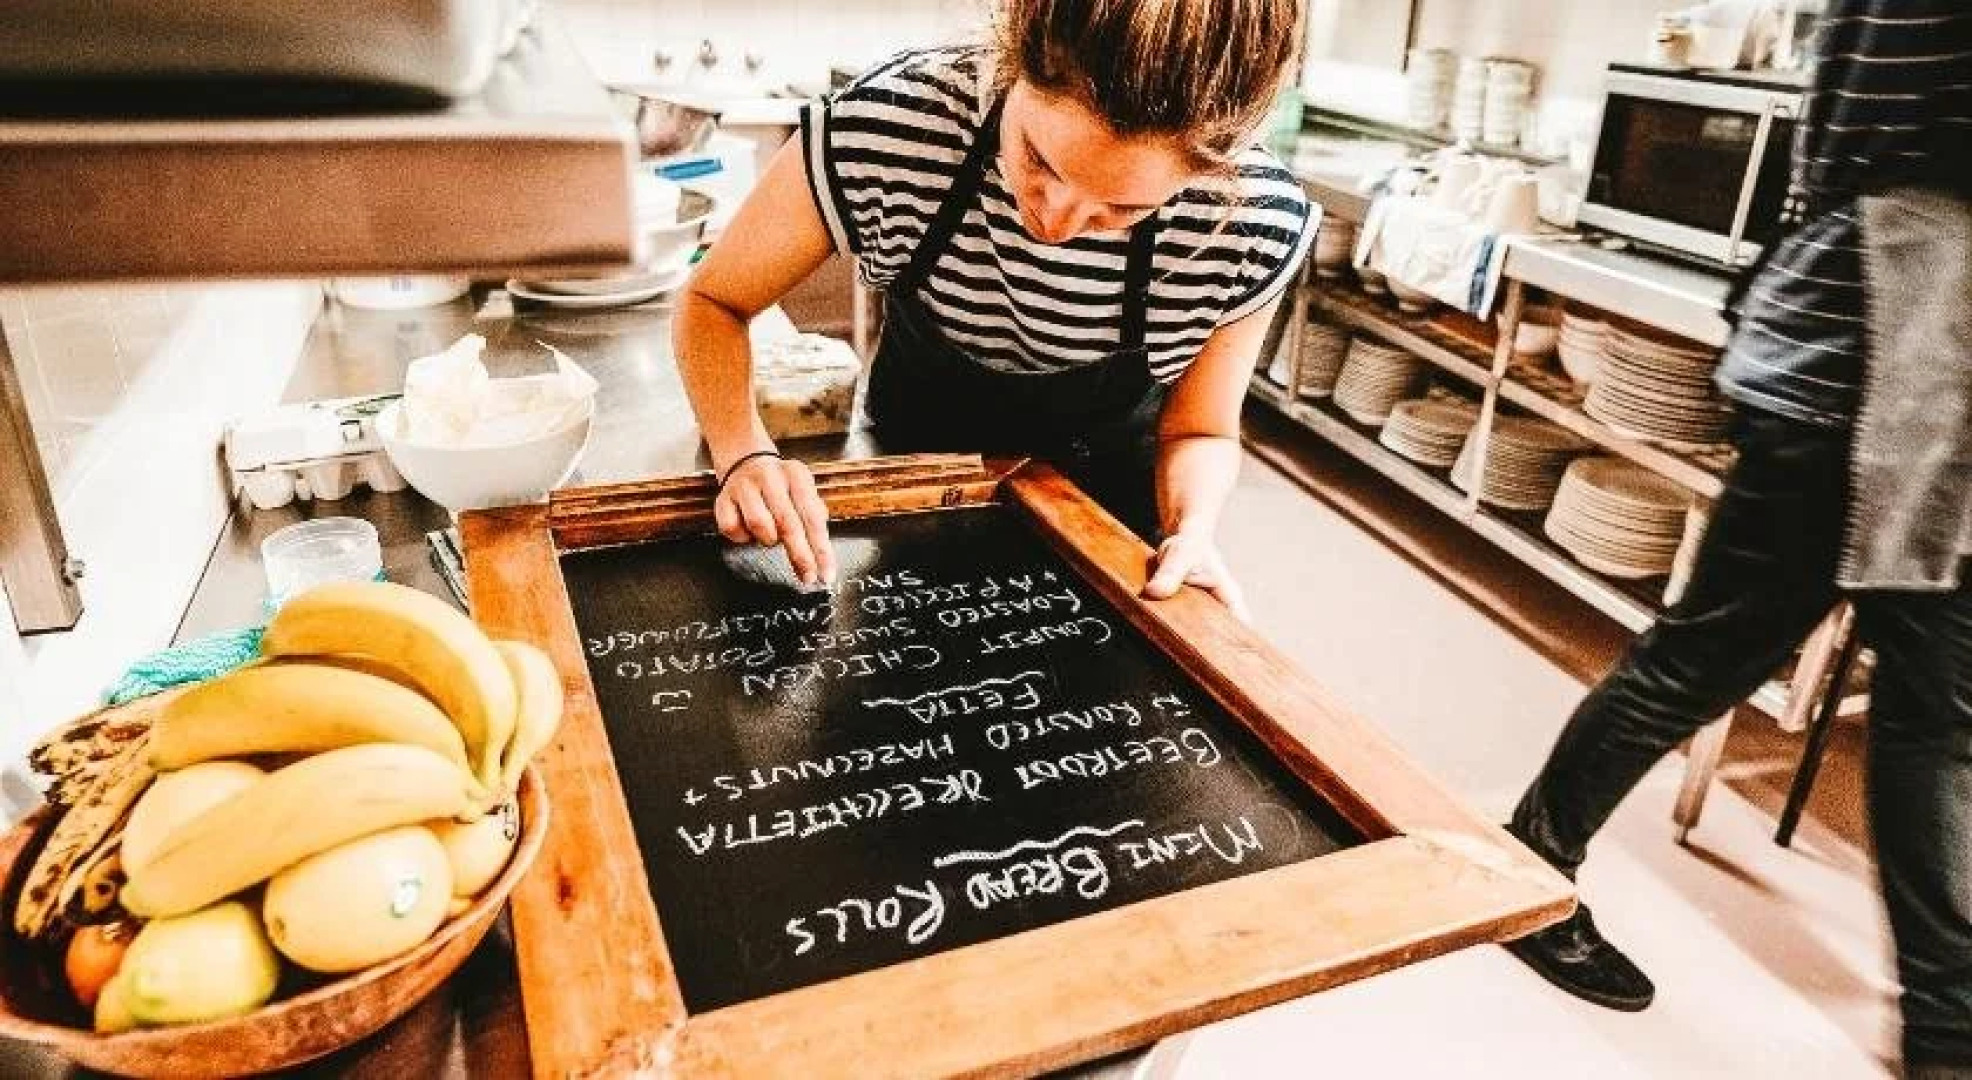 MINI BREAD ROLLS
BEETROOT ORECCHIETTA
W ROASTED HAZELNUTS +
FETTA
CONFIT CHICKEN
ROASTED SWEET POTATO
+ A PICKLED CAULIFLOWER
SAL